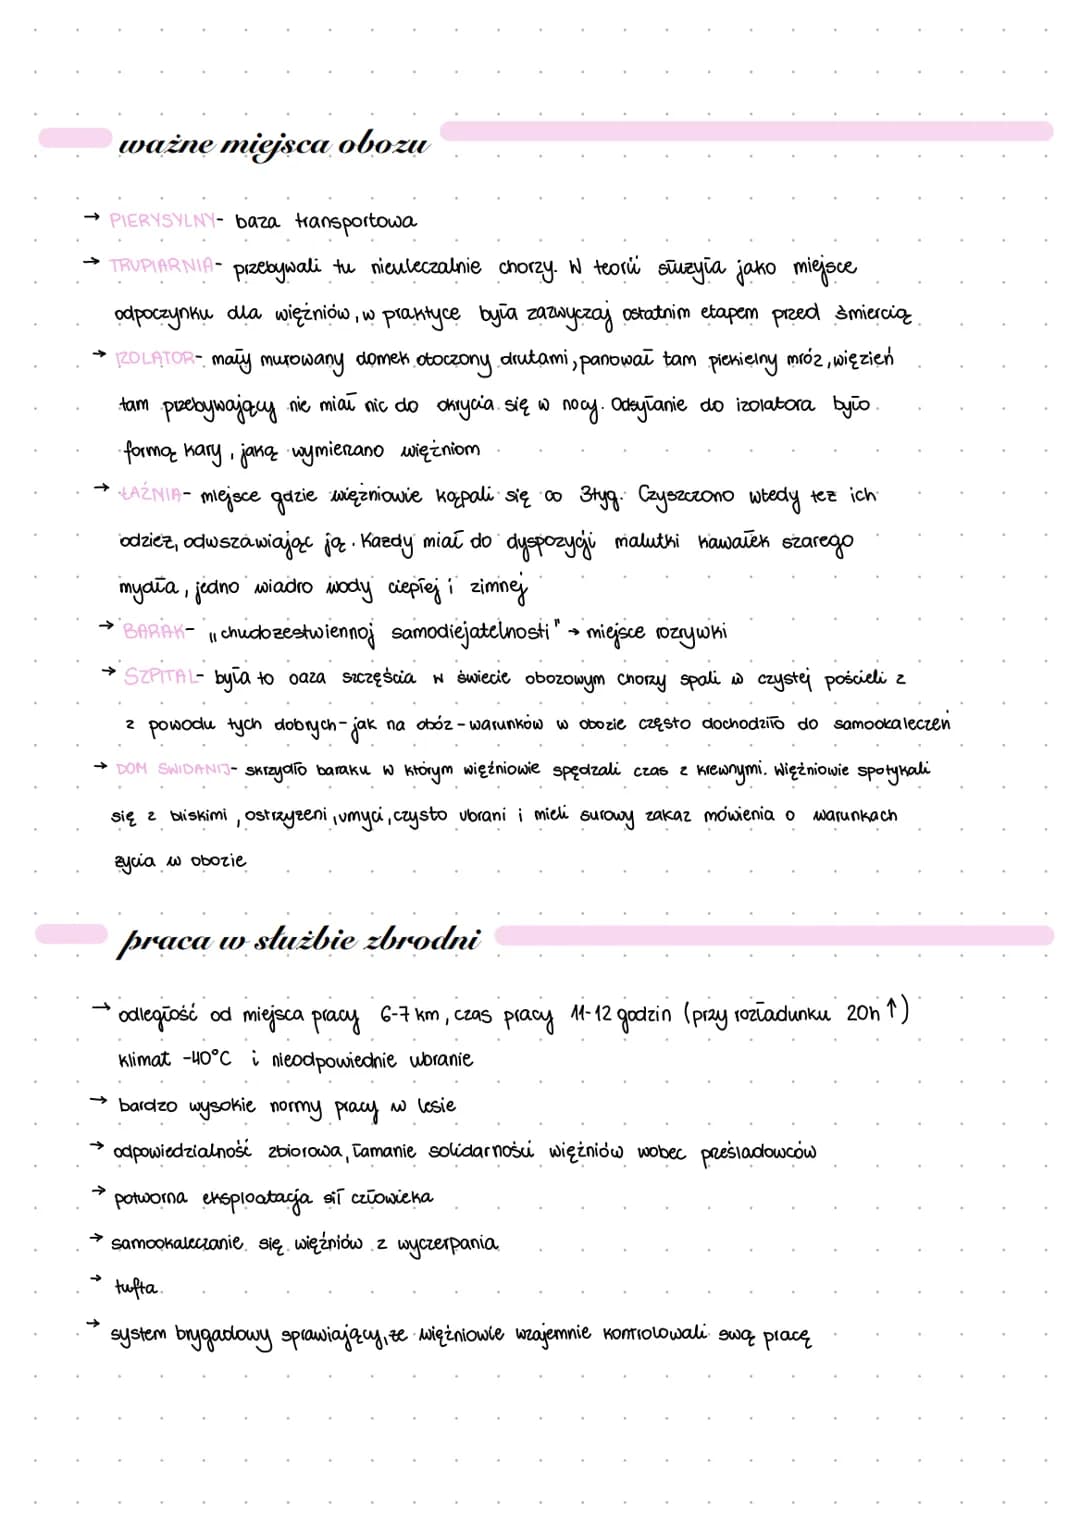 ważne miejsca obozu
→ PIERYSYLNY- baza transportowa
→ TRUPIARNIA- przebywali tu nieuleczalnie chorzy. W teorii służyła jako miejsce
odpoczynku dla więźniów, w praktyce była zazwyczaj ostatnim etapem przed śmiercią
→ IZOLATOR- mały murowany domek otoczony drutami, panował tam piekielny mróz, więzień
tam przebywający nie miał nic do okrycia się w nocy. Odsyłanie do izolatora było
formą kary, jaką wymierzano więźniom
→ ŁAŹNIA- miejsce gdzie więźniowie kąpali się co 3tyg. Czyszczono wtedy też ich
odzież, odwszawiając ją. Każdy miał do dyspozycji malutki kawałek szarego
mydła, jedno wiadro wody ciepłej i zimnej
→ BARAK- „chudożestwiennoj samodiejatelnosti" → miejsce rozrywki
→ SZPITAL- była to oaza szczęścia w świecie obozowym chorzy spali w czystej pościeli z
z powodu tych dobrych-jak na obóz-warunków w obozie często dochodziło do samookaleczeń
→ DOM SWIDANIJ- skrzydło baraku w którym więźniowie spędzali czas z krewnymi. Więźniowie spotykali
się z bliskimi, ostrzyżeni, umyci, czysto ubrani i mieli surowy zakaz mówienia o warunkach
życia w obozie
praca w służbie zbrodni
→ odległość od miejsca pracy 6-7 km, czas pracy 11-12 godzin (przy rozładunku 20h ↑)
klimat -40°C i nieodpowiednie ubranie
→ bardzo wysokie normy pracy w lesie
→ odpowiedzialność zbiorowa, łamanie solidarności więźniów wobec prześladowców
→ potworna eksploatacja sił człowieka
→ samookaleczanie się więźniów z wyczerpania
→ tufta
→ system brygadowy sprawiający, że więźniowie wzajemnie kontrolowali swą pracę